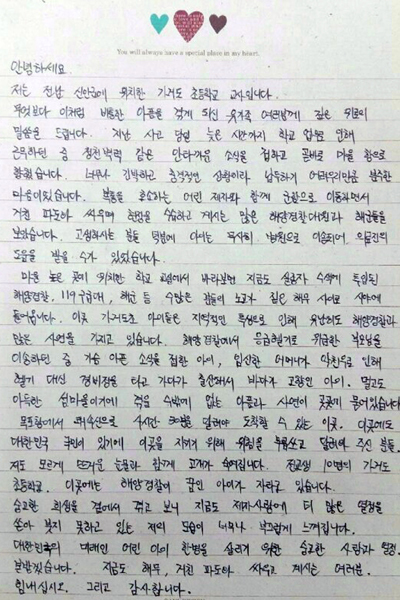 You will always have a special place in my heart.
안녕하세요.
저는 전남 신안군에 위치한 가거도 초등학교 교사입니다.
무엇보다 이처럼 비통한 아픔을 겪게 되신 유가족 여러분께 깊은 위로의
말씀을 드립니다. 지난 사고 당일 늦은 시간까지 학교 업무로 인해
근무하던 중 청천벽력 같은 안타까운 소식을 접하고 곧바로 마을 항으로
향했습니다. 너무나 긴박하고 충격적인 상황이라 납득하기 어려우리만큼 참혹한
마음이었습니다. 복통을 호소하는 어린 제자와 함께 군함으로 이동하면서
거친 파도와 싸우며 현장을 수습하고 계시는 많은 해양경찰대원과 해군들을
보았습니다. 고생하시는 분들 덕분에 아이는 무사히 병원으로 이송되어 의료진의
도움을 받을 수가 있었습니다.
마을 높은 곳에 위치한 학교 교실에서 바라보면 지금도 실종자 수색에 투입된
해양경찰, 119구급대, 해군 등 수많은 분들의 노고가 짙은 해무 사이로 시야에
들어옵니다. 이곳 가거도초 아이들은 지역적인 특성으로 인해 유난히도 해양경찰과
많은 사연을 가지고 있습니다. 해양경찰에서 응급헬기로 위급한 부모님을
이송하던 중 가슴 아픈 소식을 접한 아이, 임신한 어머니가 악천후로 인해
헬기 대신 경비정을 타고 가다가 출산해서 바다가 고향인 아이. 멀고도
아득한 섬마을이기에 겪을 수밖에 없는 아픔과 사연이 곳곳에 묻어있습니다.
목포항에서 쾌속선으로 4시간 30분을 달려야 도착할 수 있는 이곳. 이곳에도
대한민국 국민이 있기에 이곳을 지키기 위해 위험을 무릅쓰고 달려와 주신 분들.
저도 모르게 뜨거운 눈물과 함께 고개가 숙여집니다. 전교생 10명의 가거도
초등학교. 이곳에는 해양경찰이 꿈인 아이가 자라고 있습니다.
숭고한 희생을 곁에서 겪고 보니 지금도 제자사랑에 더 많은 열정을
쏟아 붓지 못하고 있는 저의 모습이 너무나 부끄럽게 느껴집니다.
대한민국의 미래인 어린 아이 한명을 살리기 위한 숭고한 사랑과 열정.
본받겠습니다. 지금도 해무, 거친 파도와 싸우고 계시는 여러분.
힘내십시오. 그리고 감사합니다.